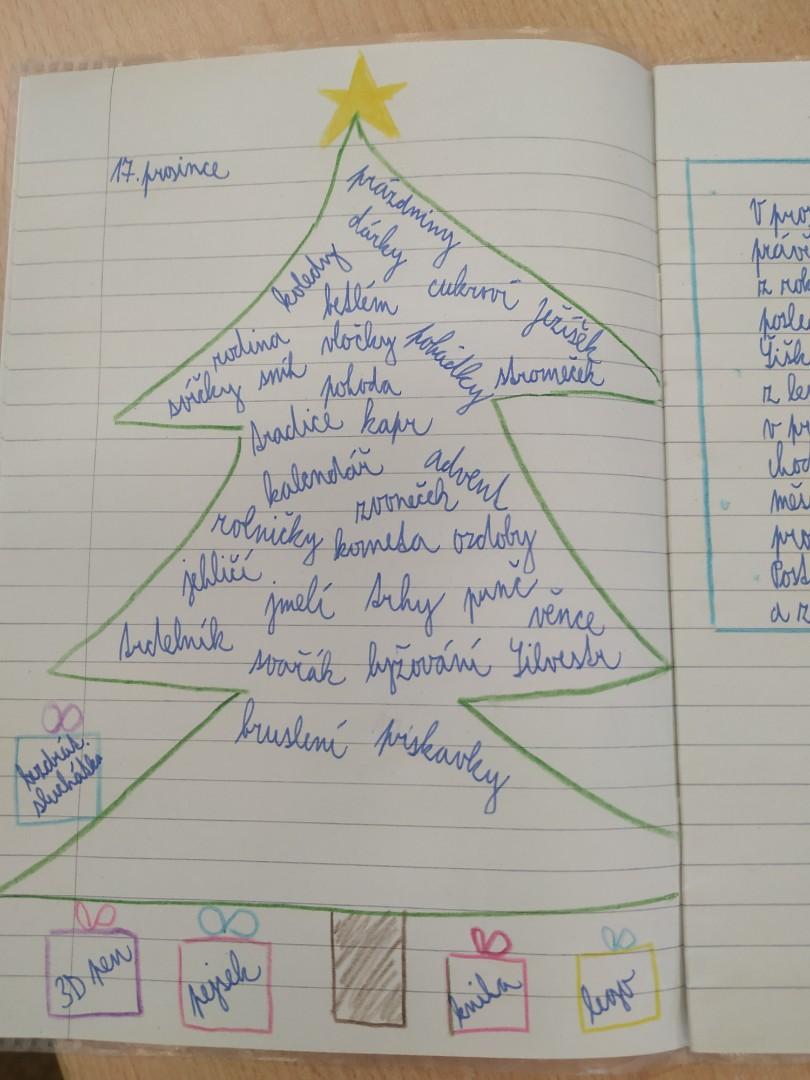 17. prosince
prázdniny
dárky
koledy
betlém cukroví Ježíšek
rodina vločky pohádky
svíčky sníh pohoda stromeček
tradice kapr
kalendář advent
zvoneček
rolničky kometa ozdoby
jehličí
jmelí trhy punč věnce
trdelník
svařák lyžování Silvestr
bruslení prskavky
bezdrát.
sluchátka
3D pen pejsek kniha lego
V pro
právě
z rok
posle
z le
v pr
chod
měs
pro
Post
a z